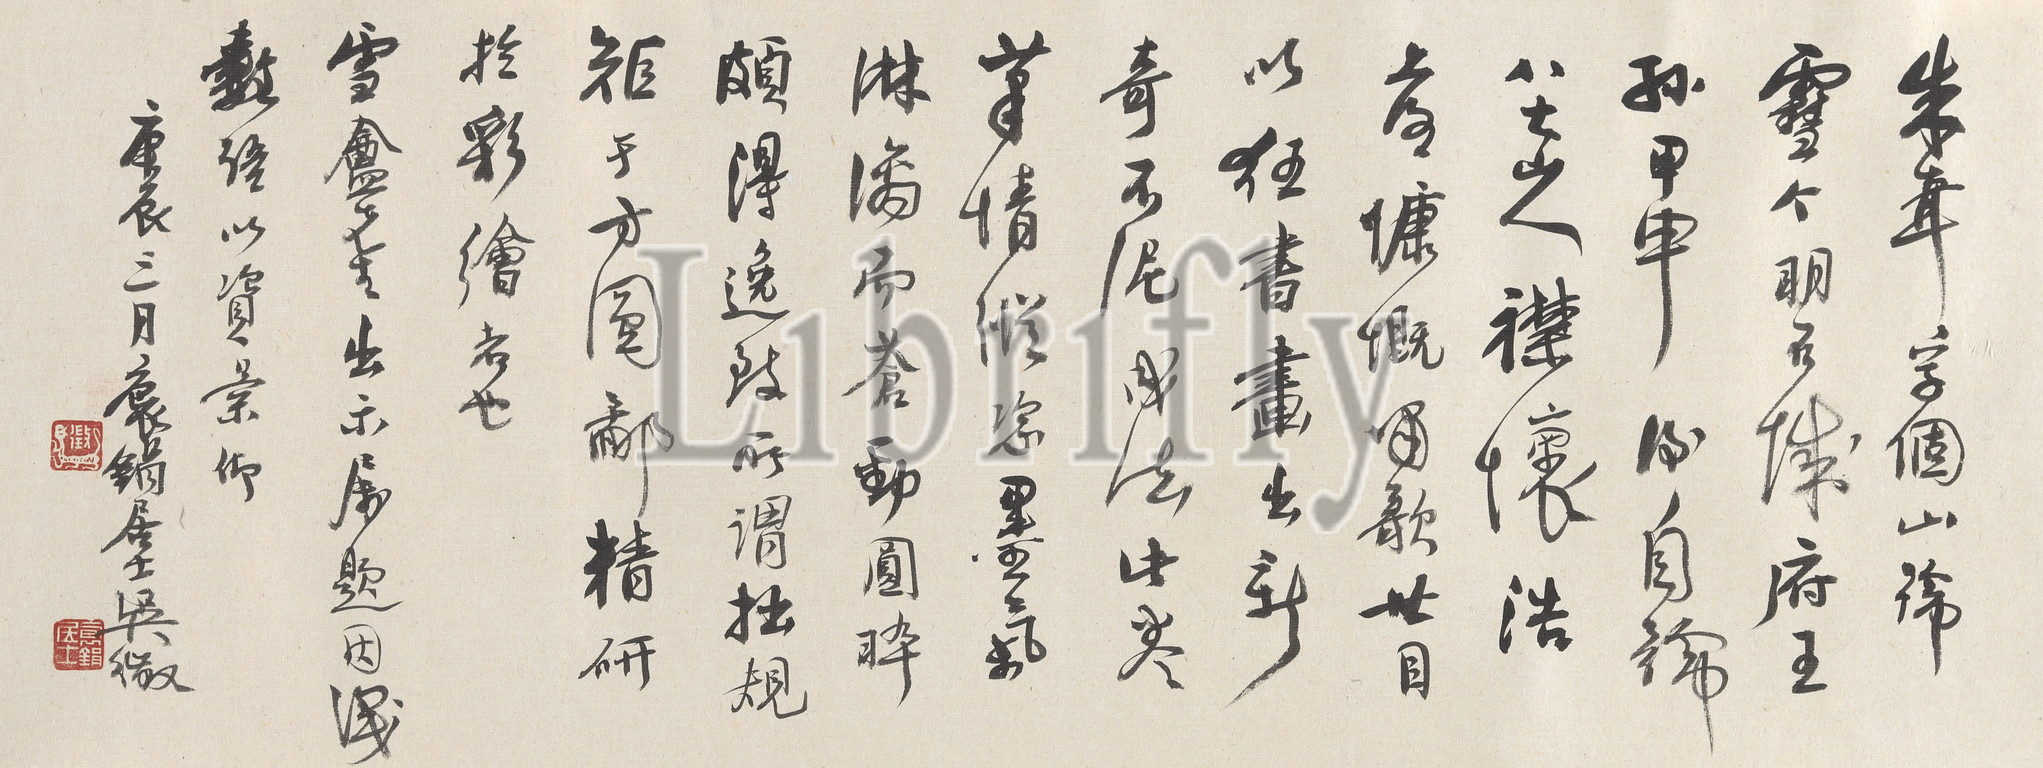 朱耷字個山號
雪个明石城府王
孫甲申後自號
八大山人襟懷浩
落慷慨嘯歌世目
以狂書畫出新
奇不泥成法此卷
筆情縱恣墨氣
淋漓而蒼勁圓晬
頗得逸致所謂拙規
矩于方圓鄙精研
於彩繪者也
雪盦先生出示屬題因識
數語以資景仰
庚辰三月袌鋗居士吳徵
袌鋗居士
Librifly